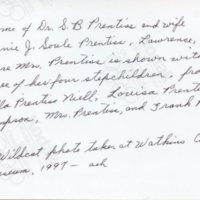 ome of Dr. S. B Prentiss and wife
nnie J. Soule Prentiss, Lawrence,
re Mrs. Prentiss is shown with
ee of her four stepchildren, fro
lla Prentiss Neill, Louisa Prent
mpson, Mrs. Prentiss, and Frank P
Wildcat photo taken at Watkins C
useum, 1997 -